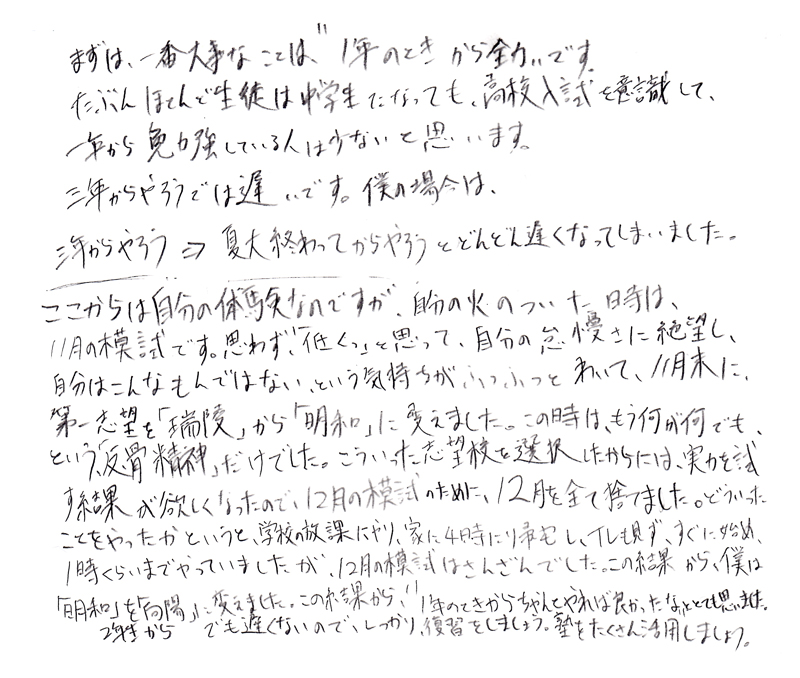 まずは、一番大事なことは、"1年のときから全力"です。
たぶんほとんど生徒は中学生になっても、高校入試を意識して、
一年から勉強している人は少ないと思います。
三年からやろうでは遅いです。僕の場合は、
三年からやろう⇒夏大終わってからやろうとどんどん遅くなってしまいました。
ここからは自分の体験なのですが、自分の火のついた日時は、
11月の模試です。思わず、「低くっ」と思って、自分の怠慢さに絶望し、
自分はこんなもんではない、という気持ちがふつふつとわいて、11月末に、
第一志望を「瑞陵」から「明和」に変えました。この時は、もう何が何でも、
という「反骨精神」だけでした。こういった志望校を選択したからには、実力を試
す結果が欲しくなったので、12月の模試のために、12月を全て捨てました。どういった
ことをやったかというと、学校の放課にやり、家に4時に帰宅し、テレも見ず、すぐに始め、
1時くらいまでやっていましたが、12月の模試はさんざんでした。この結果から、僕は
「明和」を「向陽」に変えました。この結果から、"1年のときからちゃんとやれば良かったな"ととても思いました。
2年生からでも遅くないので、しっかり、復習をしましょう。塾をたくさん活用しましょう。